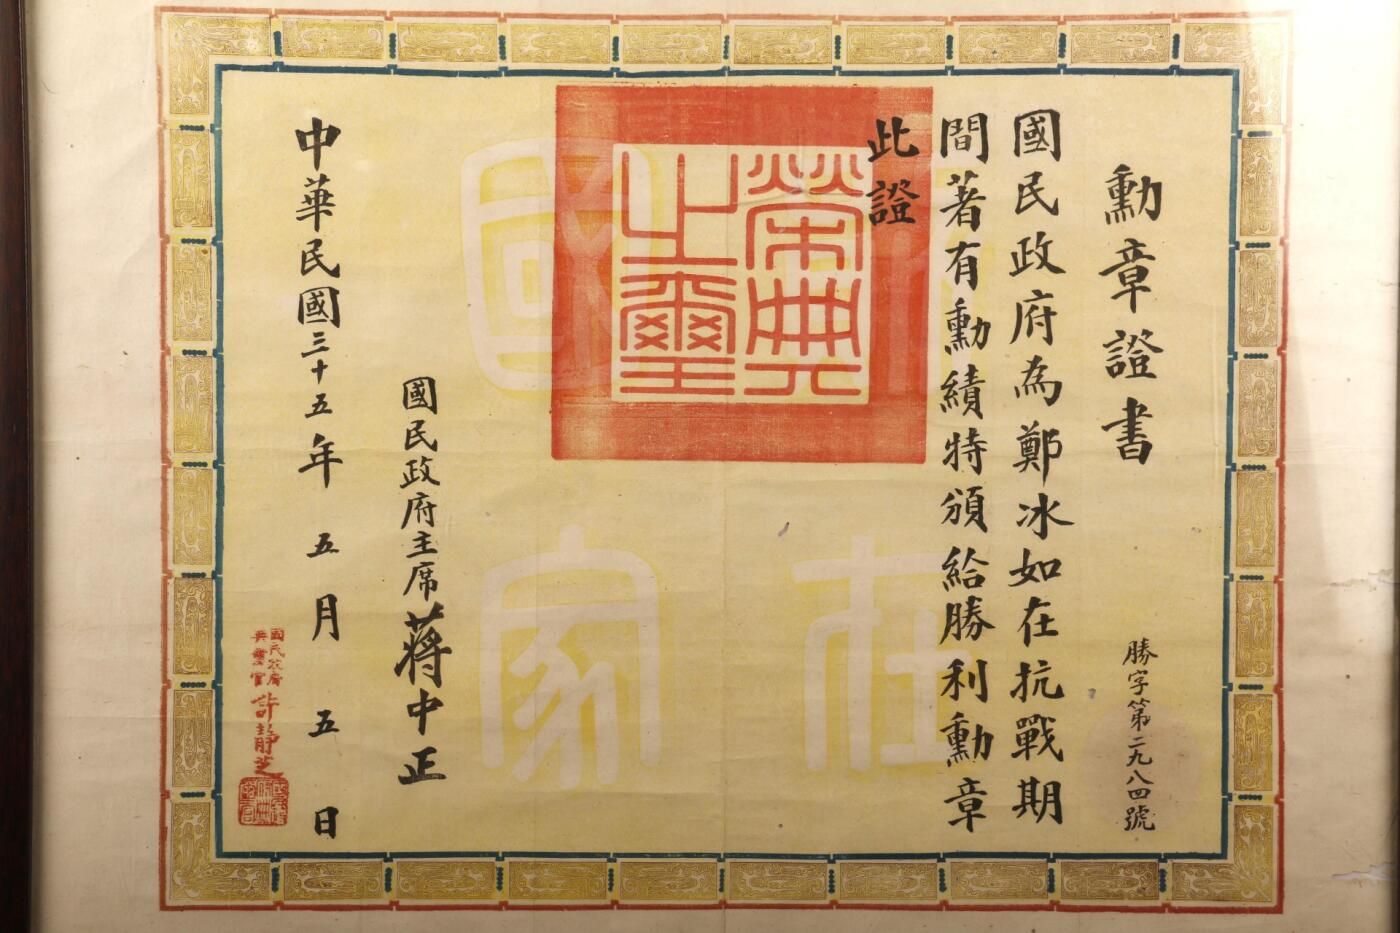 勳章證書
勝字第二九八四號
國民政府為鄭冰如在抗戰期
間著有勳績特頒給勝利勳章
此證
榮典之璽
國民政府主席蔣中正
中華民國三十五年五月五日
國民政府
典璽官許靜芝
國
家
在